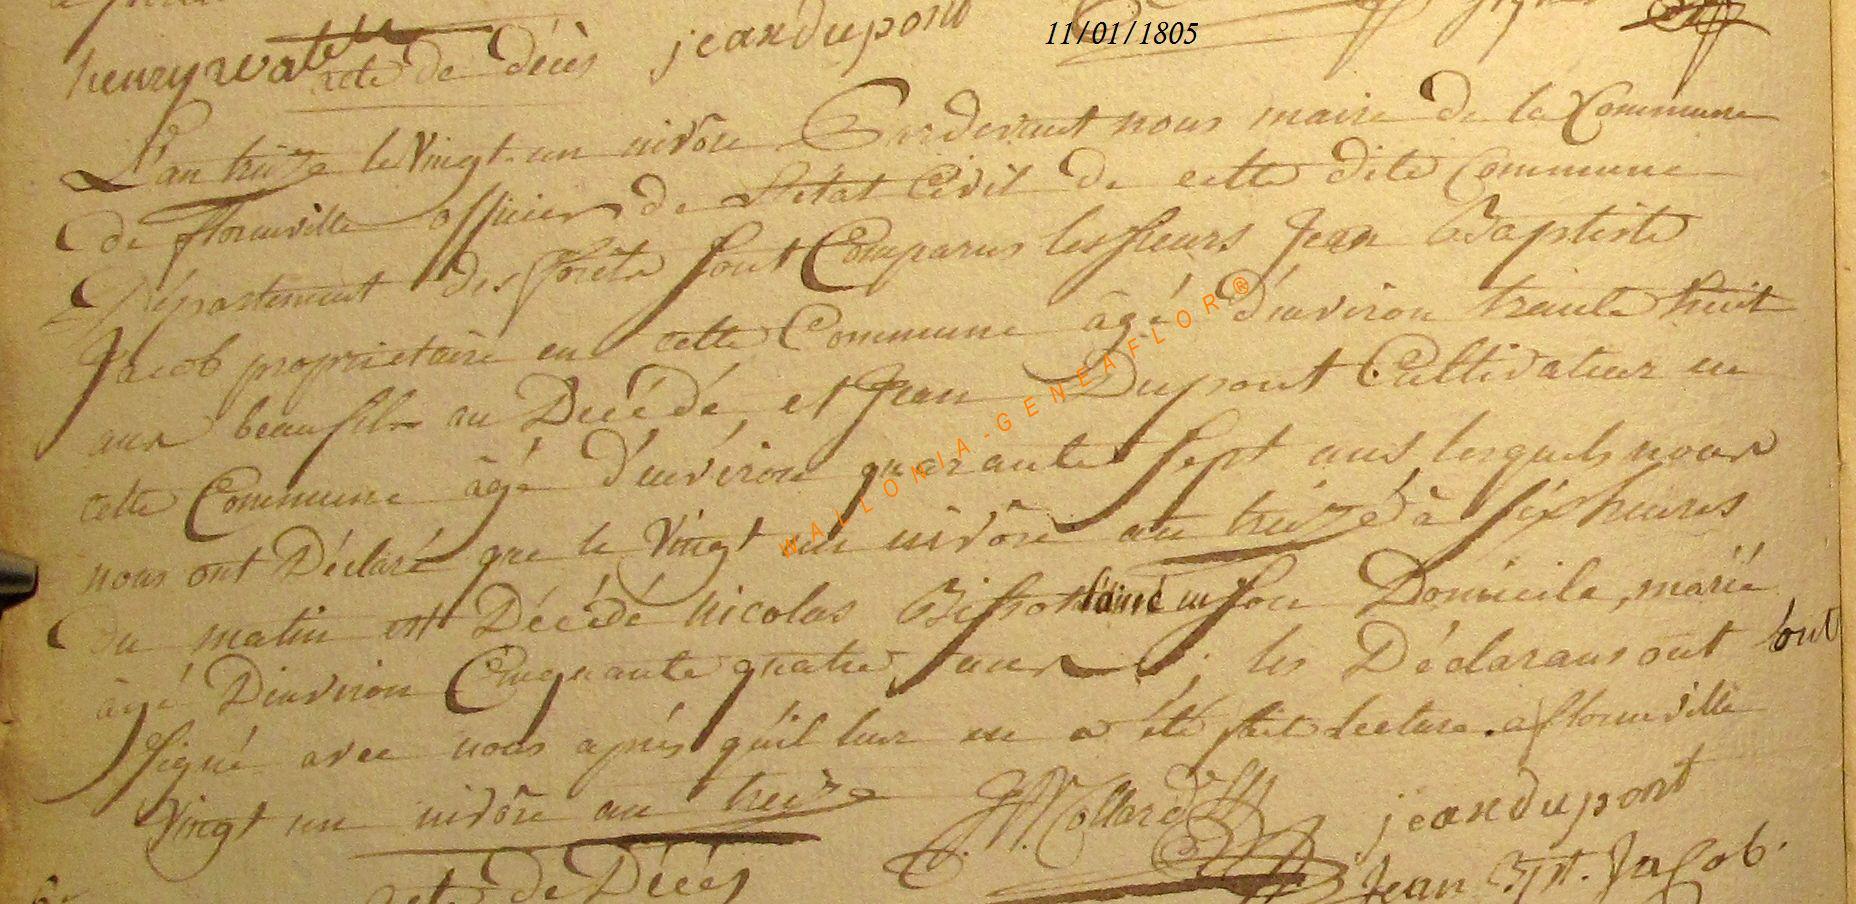 henry watelet jean dupont 11/01/1805
acte de décès
L'an treize le Vingt-un nivôse Pardevant nous maire de la Commune
de florenville officier de L'état Civil de cette dite Commune
Département des forêts sont Comparus les sieurs Jean Baptiste
Jacob proprietaire en cette Commune âgé d'environ trente huit
ans beaufils au Décédé, et Jean Dupont Cultivateur en
cette Commune âgé d'environ quarante sept ans lesquels nous
nous ont Déclaré que le Vingt un nivôse an treize à six heures
Du matin est Décédé nicolas l'ainé en son Domicile, marié
âgé D'environ Cinquante quatre ans ; les Déclarans ont tout
signé avec nous après qu'il leur en a été fait lecture. a florenville
Vingt un nivôse an treize
Collard jean dupont
acte de Décès Jean Bpt. Jacob.
WALLONIA-GENEAFLOR®